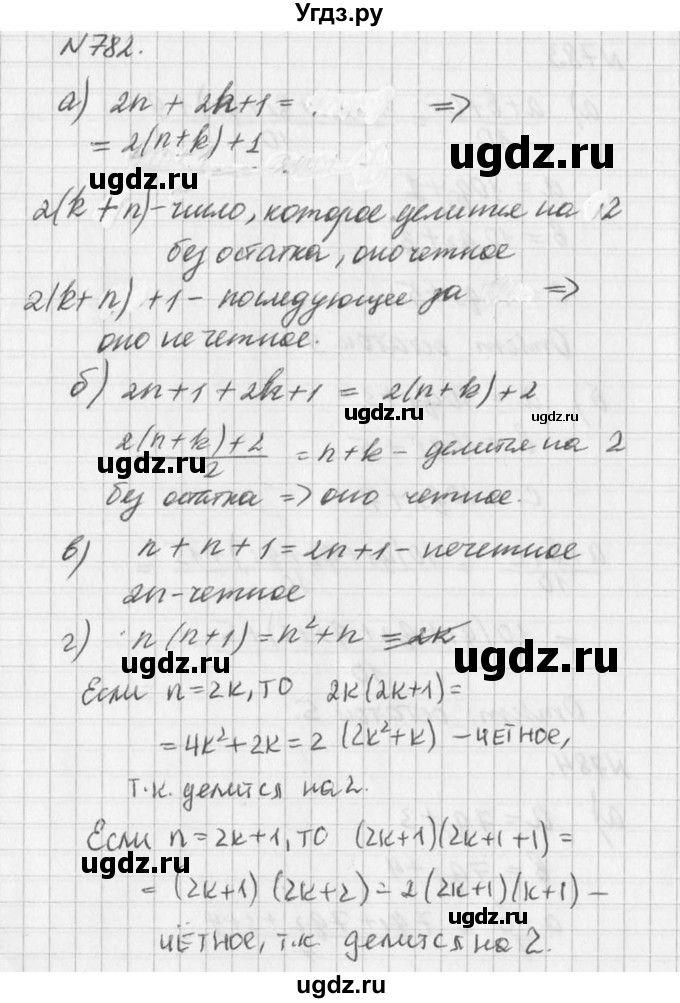 Угдз.ру
N782.
а) 2n + 2k+1 = . =>
= 2(n+k)+1
ugdz.ru
ugdz.ru
2(k+n)-число, которое делится на 2
без остатка, оно четное
ugdz.ru
2(k+n)+1 - последующее за =>
оно нечетное.
б) 2n+1+2k+1 = 2(n+k)+2
ugdz.ru
ugdz.ru
2(n+k)+2 / 2 = n+k - делится на 2
ugdz.ru
без остатка => оно четное.
в) n+n+1=2n+1 - нечетное
ugdz.ru
2n-четное
г) n(n+1)=n²+n =2k
ugdz.ru
ugdz.ru
Если n=2k, то 2k(2k+1)=
=4k²+2k=2(2k²+k) - чётное,
ugdz.ru
т.к. делится на 2.
Если n=2k+1, то (2k+1)(2k+1+1)=
ugdz.ru
=(2k+1)(2k+2)=2(2k+1)(k+1) -
ugdz.ru
чётное, т.к делится на 2.
ugdz.ru
ugdz.ru